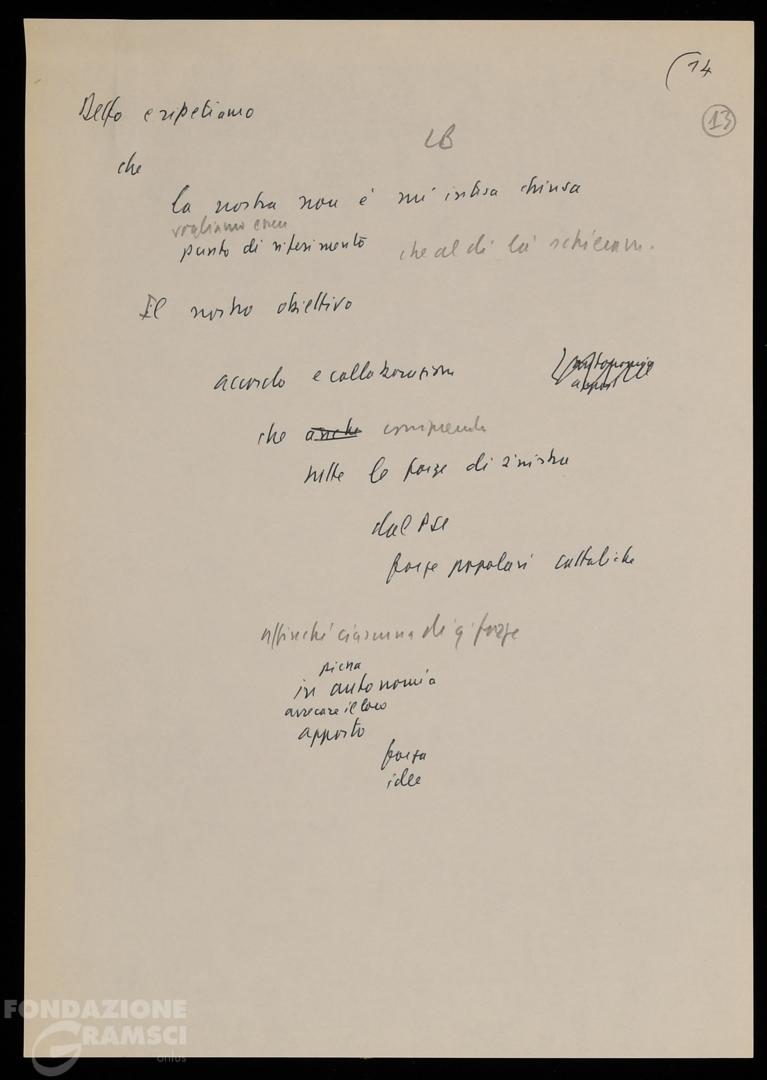 (14
13
Detto e ripetiamo
LB
che
la nostra non è un'intesa chiusa
vogliamo essere
punto di riferimento che al di là schieram.
Il nostro obiettivo
accordo e collaborazione
autonomia
apport
che anche comprenda
tutte le forze di sinistra
dal PSI
forze popolari cattoliche
affinché ciascuna di q. forze
piena
in autonomia
arrecare il loro
apporto
forza
idee
FONDAZIONE
GRAMSCI
onlus